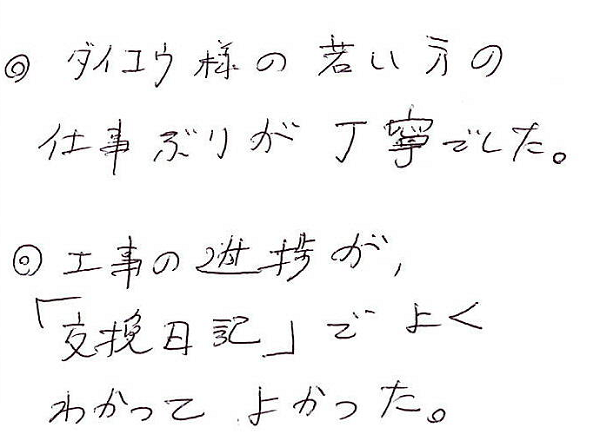 ◎ ダイコウ様の若い方の
仕事ぶりが丁寧でした。
◎ 工事の進捗が、
「交換日記」でよく
わかってよかった。